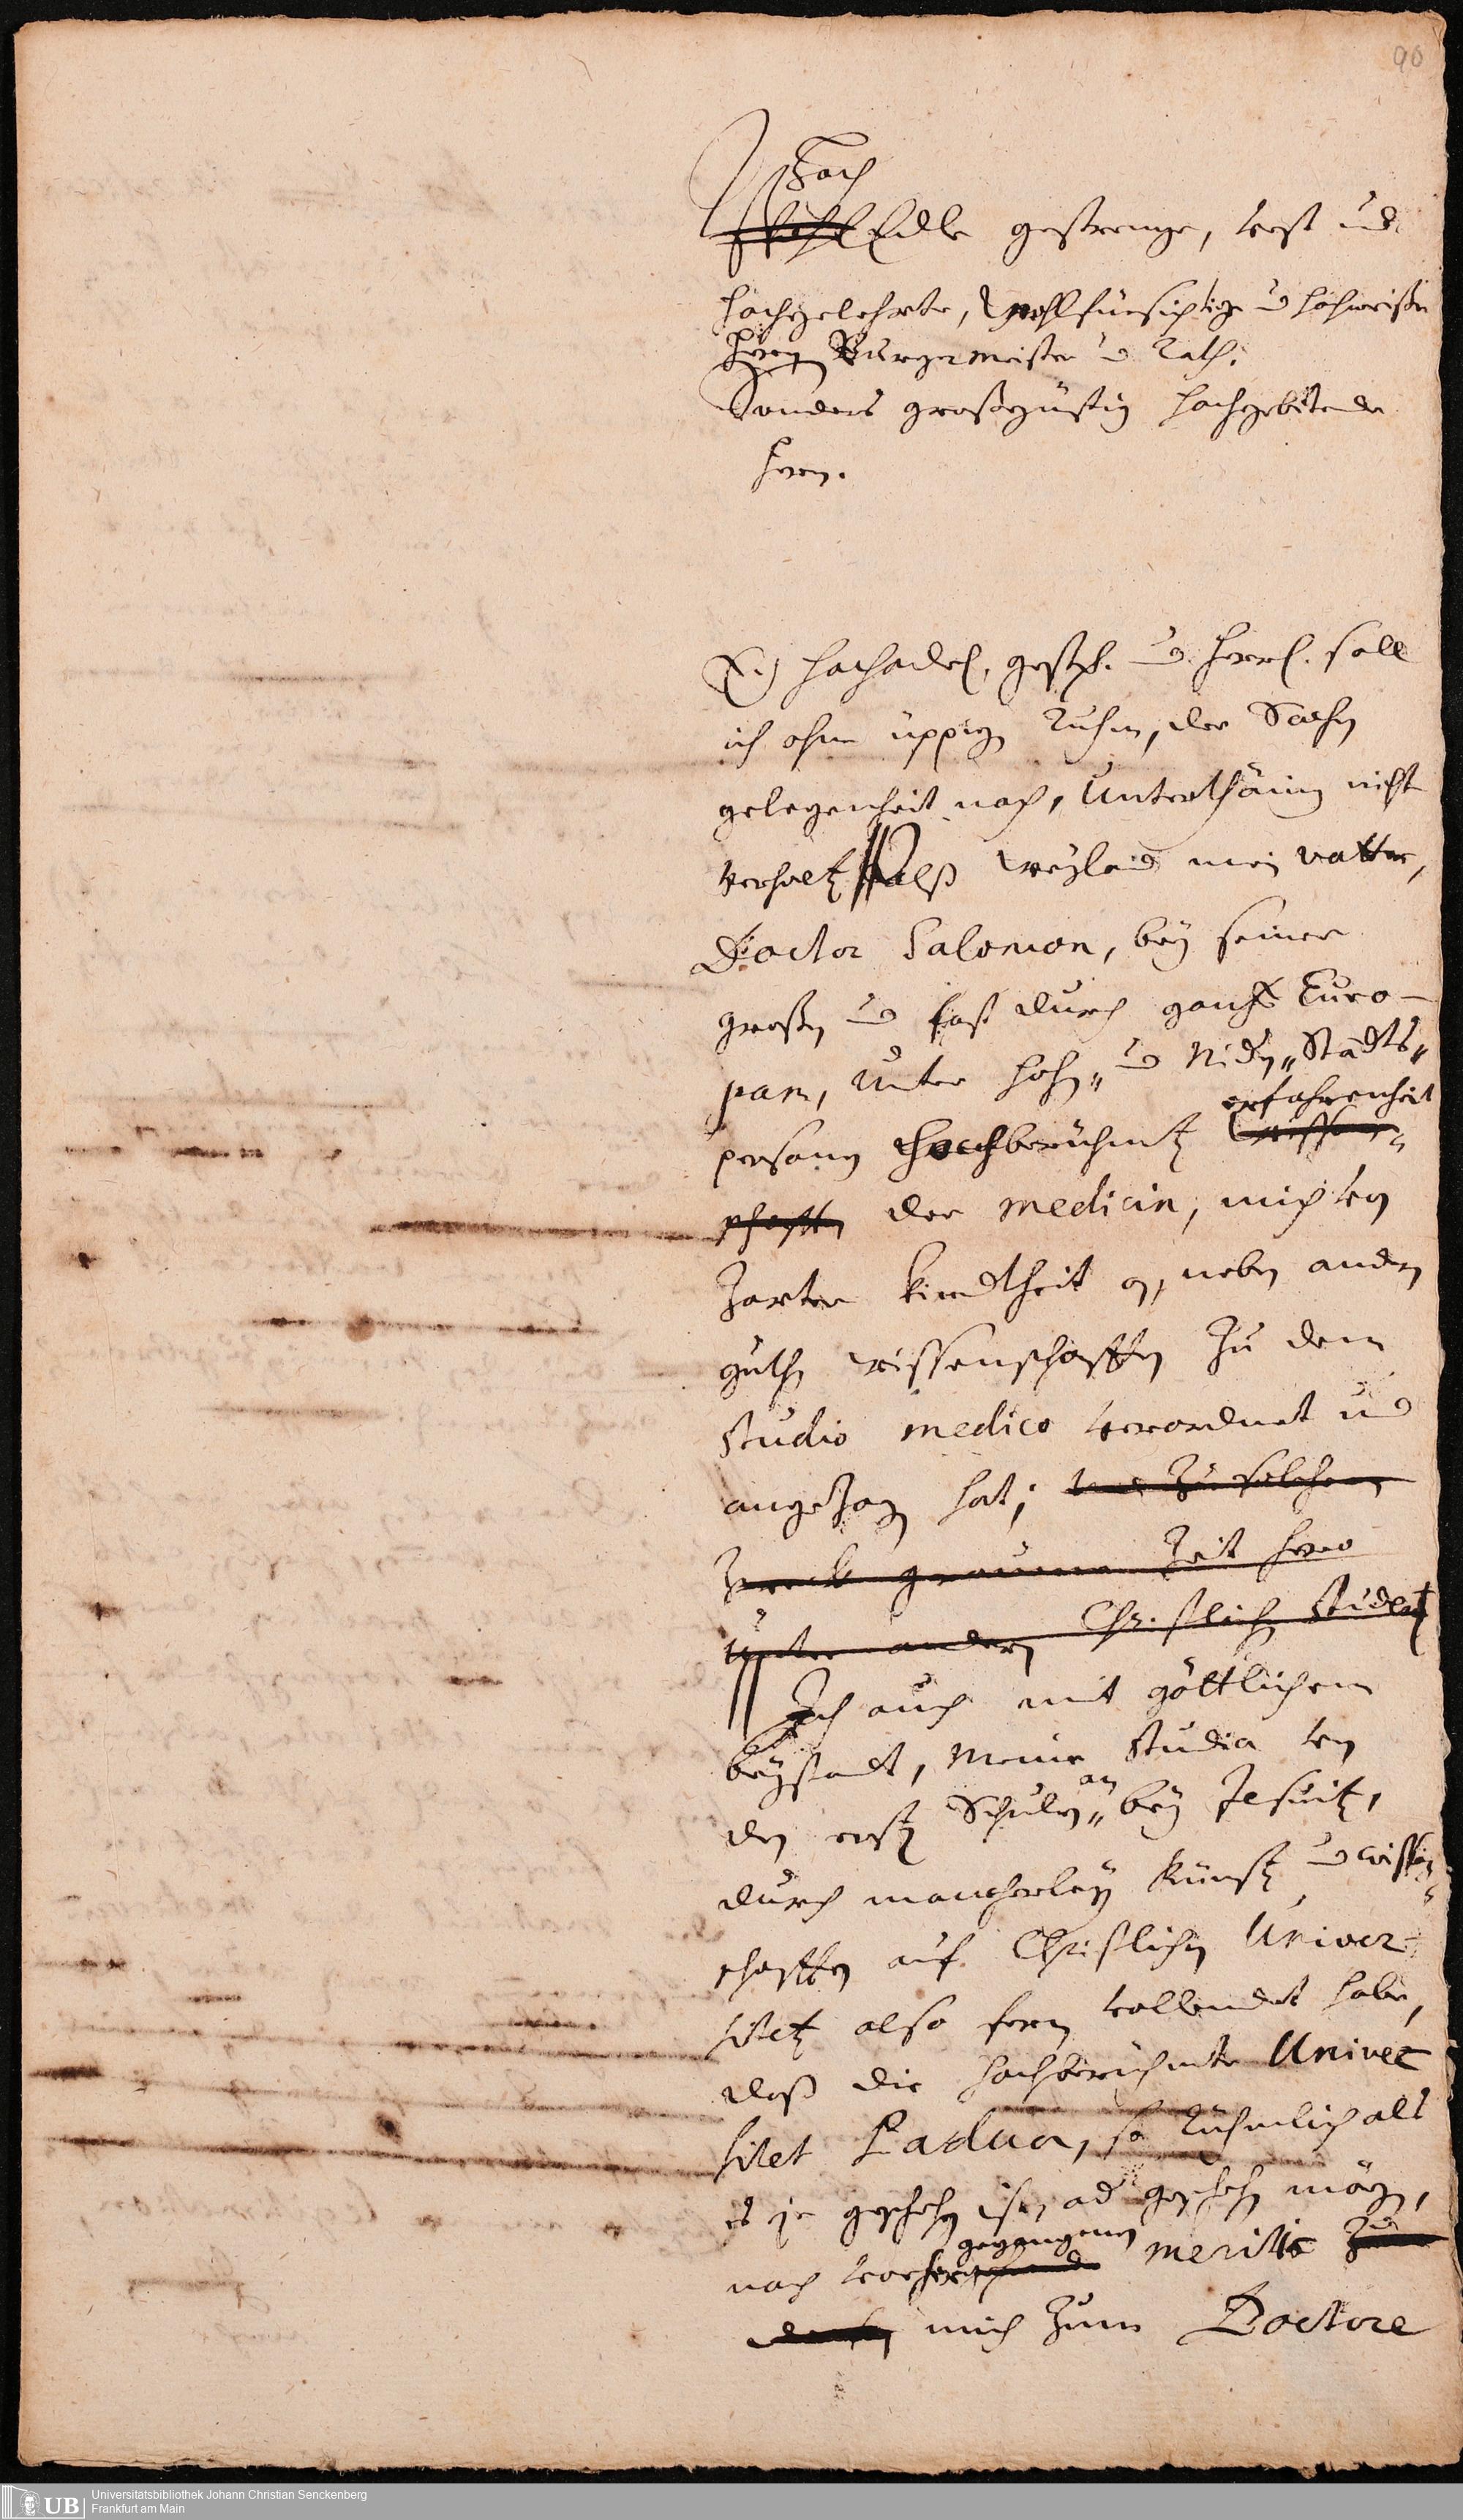 90
Hoch
Edle gestrenge, vest und
hochgelehrte, Wohlfürsichtige und hochweise
Herrn Burgermeister und Rath.
Sonders großgünstig hochgebietende
Herrn.
E. hochadel. gestr. und Herrl. soll
ich ohne üppigen Ruhm, der Sachen
gelegenheit nach, Unterthänig nicht
verhalten alß weyland mein vatter,
Doctor Salomon, bey seiner
großen und fast durch gantz Euro-
pam, unter hohen und Nidern Stadts
erfahrenheit
personen hochberühmten wissen-
schafften der medicin, mich von
zarter kindtheit an, neben andern
guthen wissenschafften zu dem
studio medico verordnet und
angezogen hat; und zu solchem
Zweck geraume Zeit hero
unter andern Christlichen Studenten
Ich auch mit göttlichem
beystandt, meine studia von
den ersten Schulen an bey Jesuiten,
durch mancherley Künsten und wissen-
schafften auf Christlichen Univer-
siteten also fern vollendet habe,
daß die hochberühmte Univer
sitet Padua, so rühmlich als
es je geschehen ist, oder geschehen mögen,
gegangenen
nach vorher meritis zu
mich zum Doctore
UB Universitätsbibliothek Johann Christian Senckenberg
Frankfurt am Main